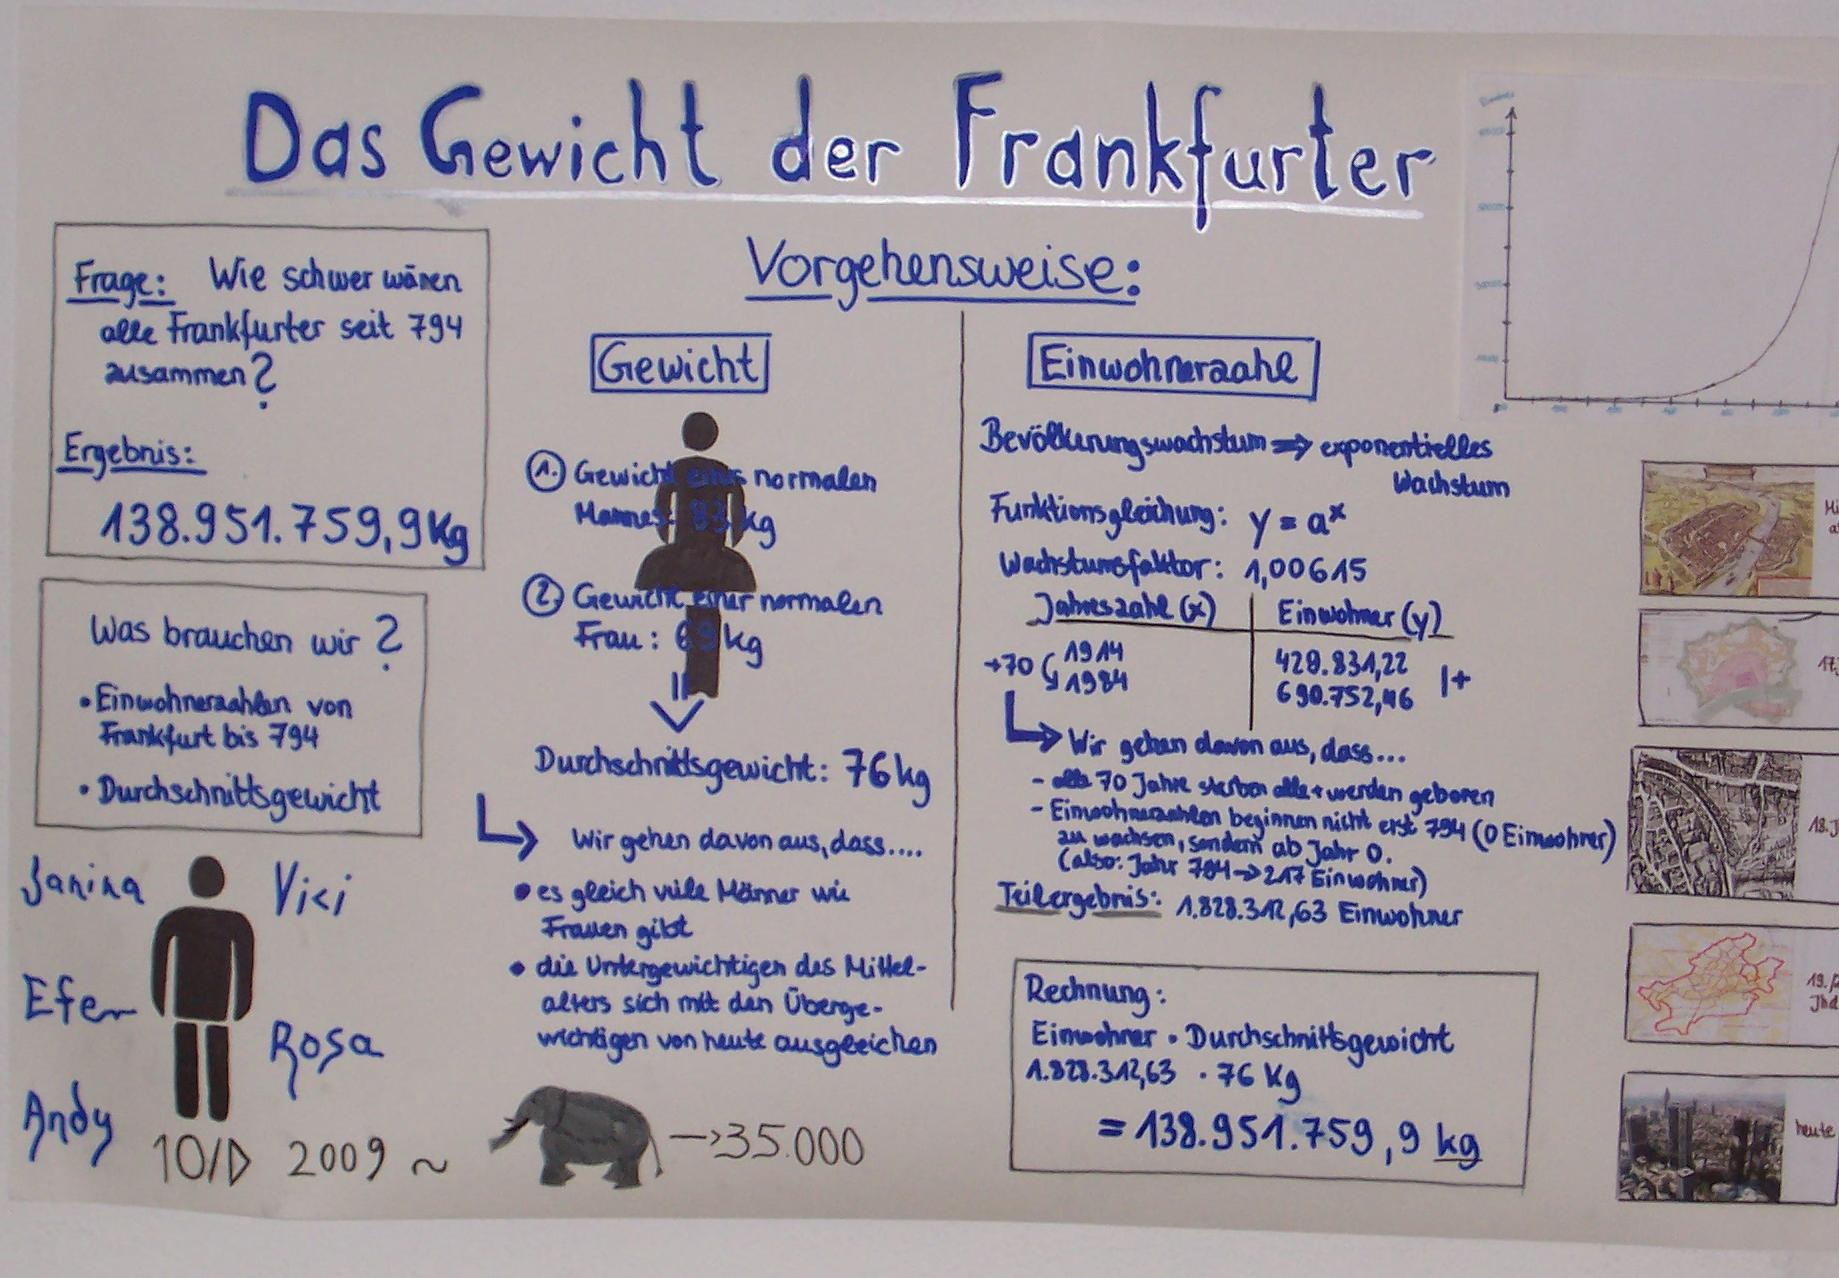 Das Gewicht der Frankfurter
Frage: Wie schwer wären
alle Frankfurter seit 794
zusammen?
Ergebnis:
138.951.759,9 Kg
Was brauchen wir?
• Einwohnerzahlen von
Frankfurt bis 794
• Durchschnittsgewicht
Janina
Vici
Efen
Rosa
Andy
10/D 2009 ~
→35.000
Vorgehensweise:
Gewicht
1. Gewicht eines normalen
Mannes: 83 kg
2. Gewicht einer normalen
Frau: 69 kg
Durchschnittsgewicht: 76 kg
Wir gehen davon aus, dass....
• es gleich viele Männer wie
Frauen gibt
• die Untergewichtigen des Mittel-
alters sich mit den Überge-
wichtigen von heute ausgleichen
Einwohnerzahl
Bevölkerungswachstum ⇒ exponentielles
Wachstum
Funktionsgleichung: y = aˣ
Wachstumsfaktor: 1,00615
Jahreszahl (x) Einwohner (y)
+70 1914 429.831,22
1984 690.752,46 |+
Wir gehen davon aus, dass...
- alle 70 Jahre sterben alle + werden geboren
- Einwohnerzahlen beginnen nicht erst 794 (0 Einwohner)
zu wachsen, sondern ab Jahr 0.
(also: Jahr 794 → 217 Einwohner)
Teilergebnis: 1.828.312,63 Einwohner
Rechnung:
Einwohner • Durchschnittsgewicht
1.828.312,63 • 76 Kg
= 138.951.759,9 kg
heute